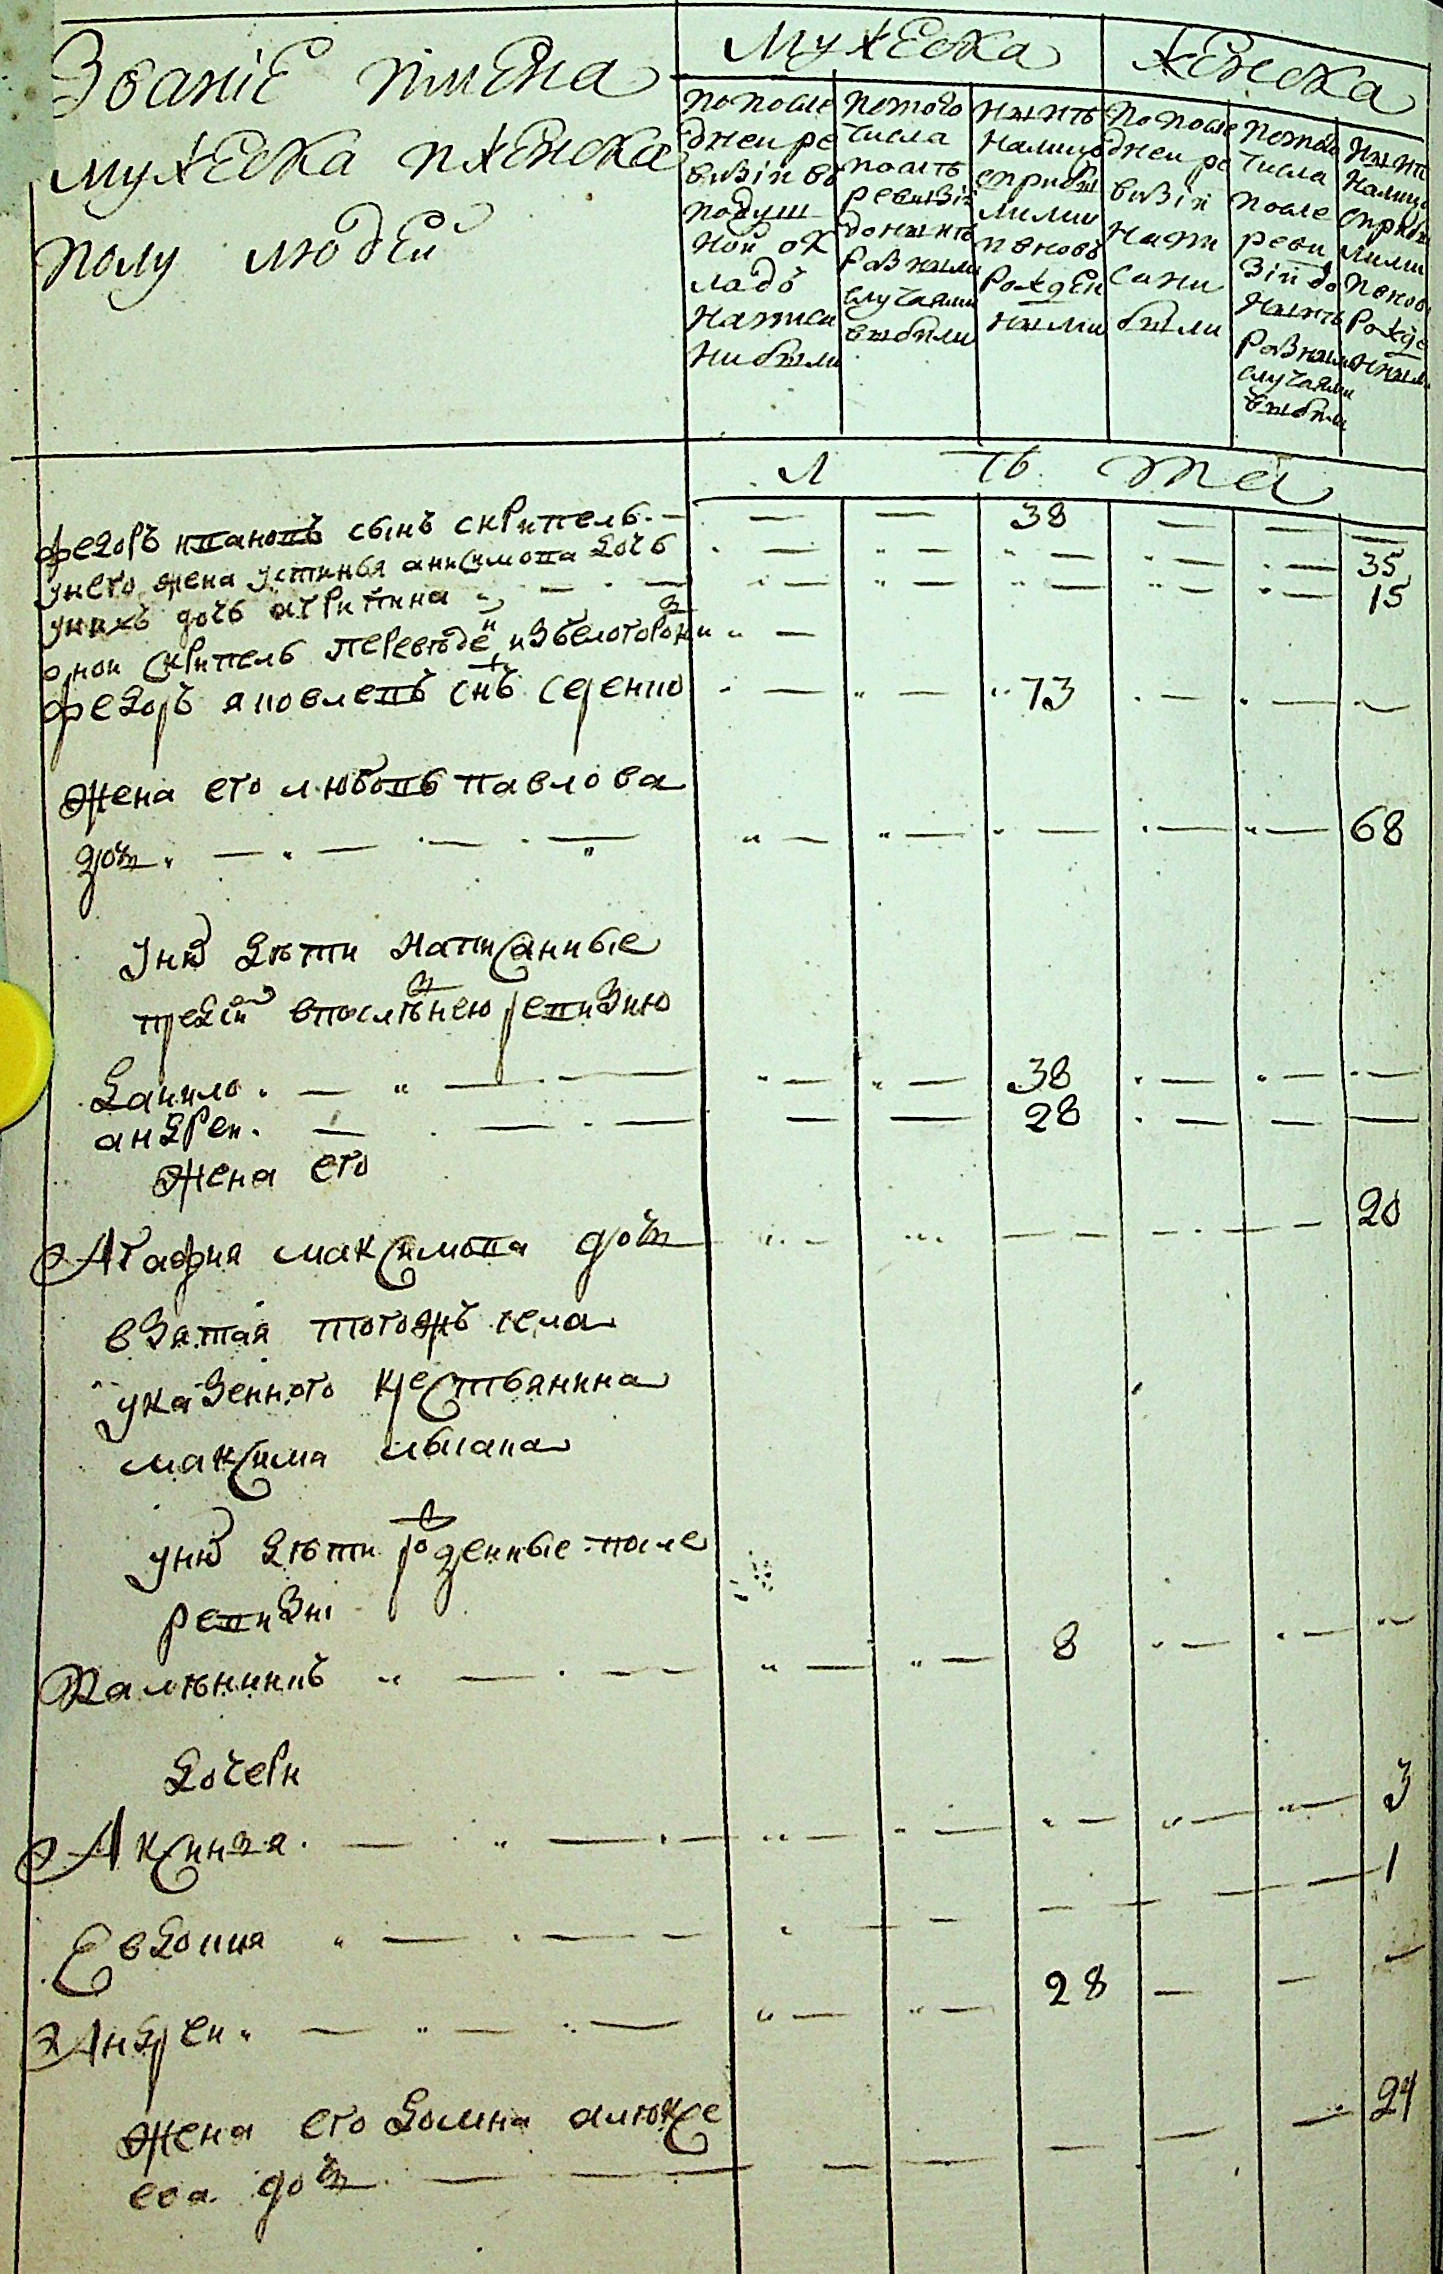 Званіе іимена
мужеска иженска
полу людей
Мужеска
Женска
по после
дней ре
визіи во
подуш
ной ок
ладъ
написа
ни были
ис того
числа
послѣ
ревизіи
до нынѣ
разными
случаями
выбыли
нынѣ
налицо
сприбы
лыми
и вновь
рожден
ными
по после
дней ре
визіи
напи
саны
были
ис того
числа
после
реви
зіи до
нынѣ
разными
случаями
выбыли
нынѣ
налицо
сприбы
лыми
и внов
рожде
нными
лѣта
Федоръ ивановъ сынъ скрипель 38
унего жена устинья анисимова дочь 35
унихъ дочь агрипина 15
оной скрипель переведен изъ
Федоръ яковлевъ снъ сененко 73
жена его любовь павлова
дочь 68
уних дѣти написанные
пред сий впослѣднею ревизию
данило 38
андрей 28
жена его
Агафия максимова дочь 20
взятая тогожъ села
указенного крестьянина
максима
уних дѣти рожденные после
ревизиі
Калѣникъ 8
дочери
Аксиния 3
Евдокия 1
Андрей 28
жена его домна алексе
ева дочь 24